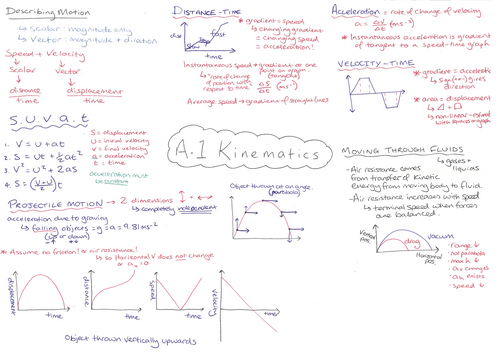 Describing Motion
↳ Scalar: magnitude only
↳ Vector: magnitude + diration
Speed + Velocity
↓ ↓
Scalar Vector
↓ ↓
distance displacement
time time
S.U.V.a.t
1. V = u + at
2. S = Ut + ½at²
3. V² = U² + 2as
4. S = (V+U)t
2
S = displacement
U = initial velocity
V = final velocity
a = acceleration
t = time
acceleration must be constant
PROJECTILE MOTION → 2 dimensions
↳ completely independent
acceleration due to gravity
↳ falling objects = g = a = 9.81ms⁻²
(up or down)
* Assume no friction! or air resistance!
↳ so Horizontal V does not change
or a = 0
displacement
time
distance
time
speed
time
velocity
time
Object thrown vertically upwards
DISTANCE-TIME
dist
fast
slow
time
* gradient = speed
↳ changing gradient
= changing speed
= acceleration!
Instantaneous speed = gradient at one
point on graph
(tangent)
↳ rate of change
of position with
respect to time
ΔS
Δt
(ms⁻¹)
Average speed = gradient of straight line
A.1 Kinematics
Object thrown at an angle.
(parabola)
Acceleration = rate of change of velocity
a = Δv (ms⁻²)
Δt
* Instantaneous acceleration is gradient
of tangent to a speed-time graph
VELOCITY-TIME
* gradient = acceleration
↳ sign (+-) gives
direction
* area = displacement
↳ △ + □
↳ non-linear = estimate
with squares on graph
MOVING THROUGH FLUIDS
↳ gases +
liquids
- Air resistance comes
from transfer of kinetic
energy from moving body to fluid.
- Air resistance increases with speed
↳ terminal speed when forces
are balanced.
Vertical
pos.
vacuum
drag
Horizontal
pos.
· range ↓
· not parabola
· max h ↓
· changes
· exists
· speed ↓